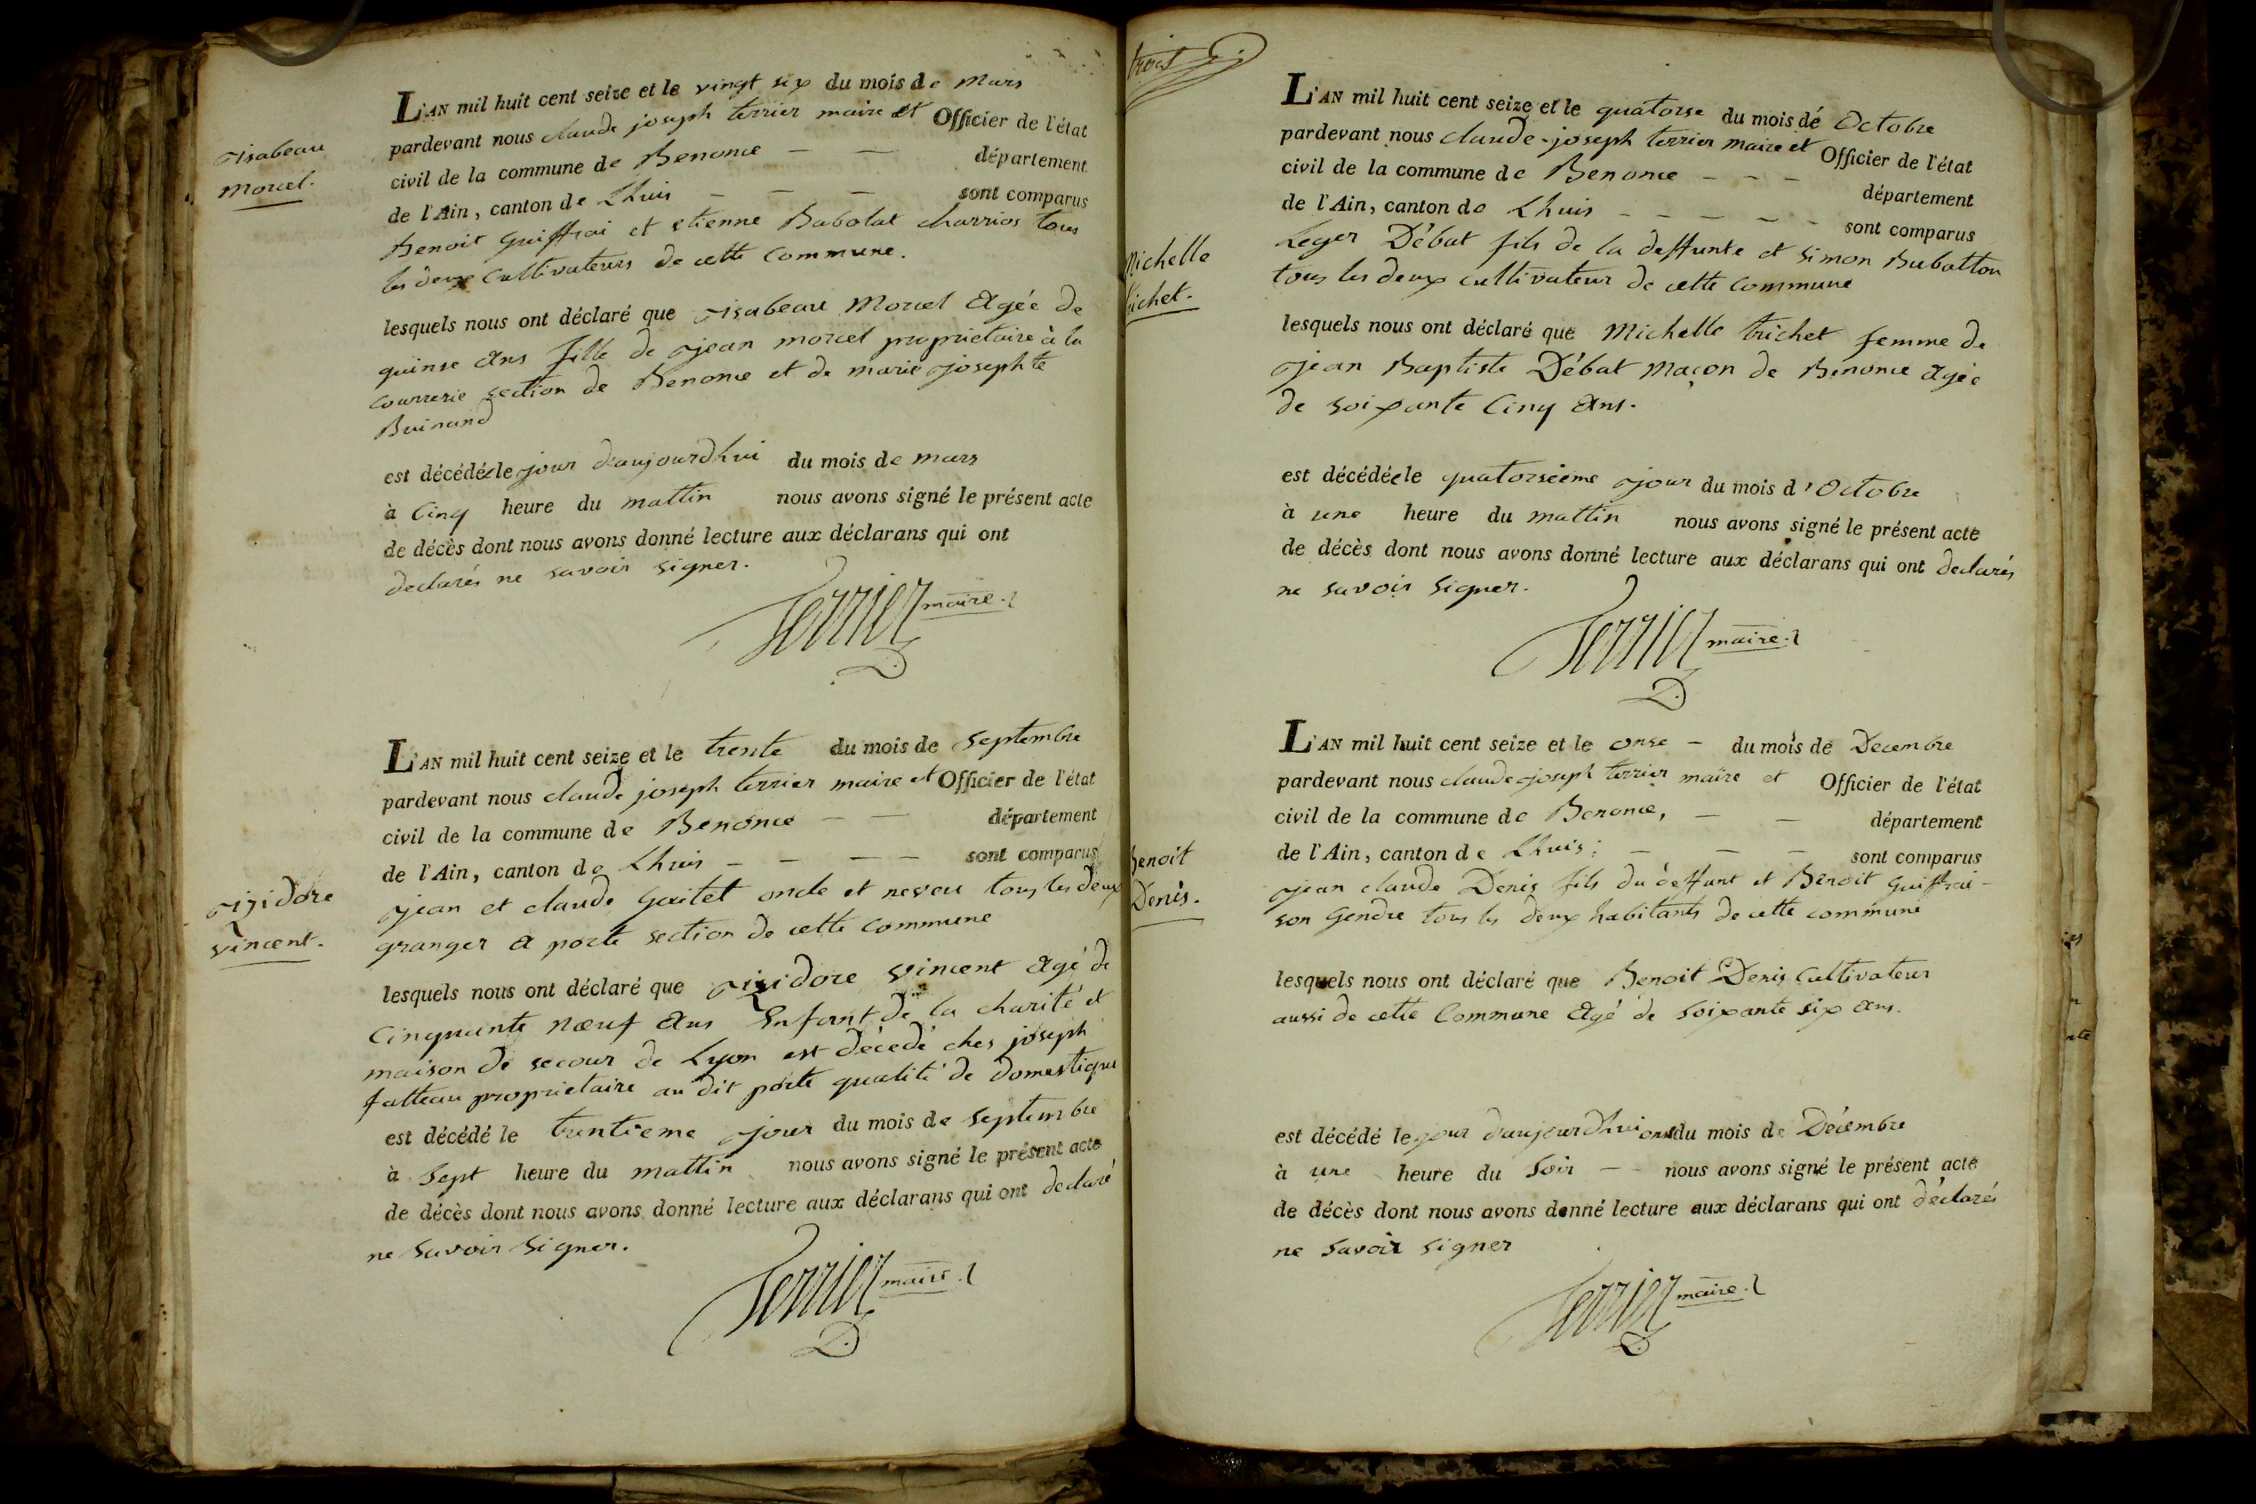 L'AN mil huit cent seize et le vingt six du mois de Mars
pardevant nous claude joseph terrier maire et Officier de l'état
civil de la commune de Benonce — — département
de l'Ain, canton de Lhuis — — — sont comparus
Benoit Guiffrai et etienne Babolat charrios tous
les deux Cultivateurs de cette Commune.
jsabeau
Morcel.
lesquels nous ont déclaré que jsabeau Morcel Agée de
quinse Ans fille de jean morcel proprietaire à la
Courrerie section de Benonce et de marie josephte
Buinand
est décédée le jour d'aujourdhui du mois de mars
à Cinq heure du mattin nous avons signé le présent acte
de décès dont nous avons donné lecture aux déclarans qui ont
declarés ne savoir signer.
Terrier maire.
L'AN mil huit cent seize et le trente du mois de Septembre
pardevant nous claude joseph terrier maire et Officier de l'état
civil de la commune de Benonce — — département
de l'Ain, canton de Lhuis — — — — sont comparus
jean et claude Goitet oncle et neveu tous les deux
granger a porte section de cette Commune
jsidore
Vincent.
lesquels nous ont déclaré que jsidore Vincent Agé de
Cinquante nœuf Ans Enfant de la charité et
maison de secour de Lyon est décédé ches joseph
fatteau proprietaire au dit porte qualité de Domestique
est décédé le trentieme jour du mois de Septembre
à Sept heure du mattin nous avons signé le présent acte
de décès dont nous avons donné lecture aux déclarans qui ont declaré
ne savoir signer.
Terrier maire.
trois
L'AN mil huit cent seize et le quatorse du mois dé Octobre
pardevant nous claude-joseph terrier maire et Officier de l'état
civil de la commune de Benonce — — — département
de l'Ain, canton de Lhuis — — — — — sont comparus
Leger Débat fils de la deffunte et simon Babolton
tous les deux cultivateur de cette Commune
Michelle
trichet.
lesquels nous ont déclaré que Michelle trichet femme de
jean Baptiste Débat Maçon de Benonce Agée
de soixante Cinq Ans.
est décédée le quatorsième jour du mois d'Octobre
à une heure du mattin nous avons signé le présent acte
de décès dont nous avons donné lecture aux déclarans qui ont declarés
ne savoir signer.
Terrier maire.
L'AN mil huit cent seize et le onse — du mois de Decembre
pardevant nous claude joseph terrier maire et Officier de l'état
civil de la commune de Benonce, — — département
de l'Ain, canton de Lhuis; — — — sont comparus
jean claude Denis fils du déffunt et Benoit Guiffrai -
son Gendre tous les deux habitants de cette commune
Benoit
Denis.
lesquels nous ont déclaré que Benoit Denis Cultivateur
aussi de cette Commune Agé de Soixante six Ans.
est décédé le jour d'aujourdhui onse du mois de Décembre
à une heure du Soir — nous avons signé le présent acte
de décès dont nous avons donné lecture aux déclarans qui ont déclarés
ne savoir signer
Terrier maire.